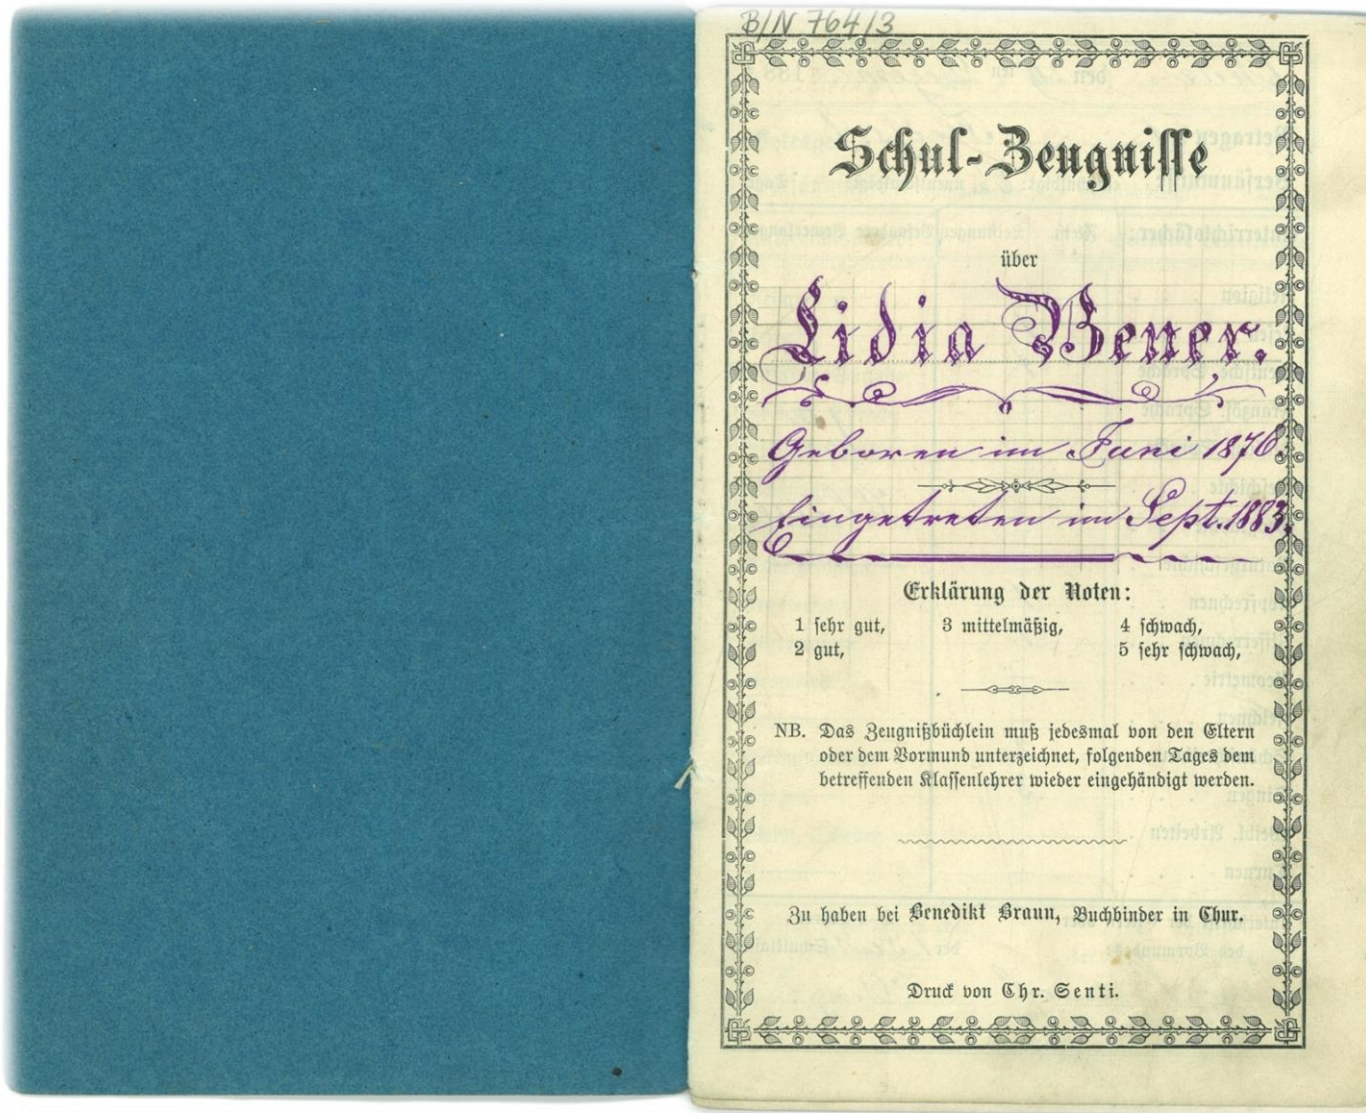 B/N 764/3
Schul-Zeugnisse
über
Lidia Bener.
Geboren im Juni 1876.
Eingetreten im Sept. 1883.
Erklärung der Noten:
1 sehr gut, 3 mittelmäßig, 4 schwach,
2 gut, 5 sehr schwach,
NB. Das Zeugnißbüchlein muß jedesmal von den Eltern
oder dem Vormund unterzeichnet, folgenden Tages dem
betreffenden Klassenlehrer wieder eingehändigt werden.
Zu haben bei Benedikt Braun, Buchbinder in Chur.
Druck von Chr. Senti.